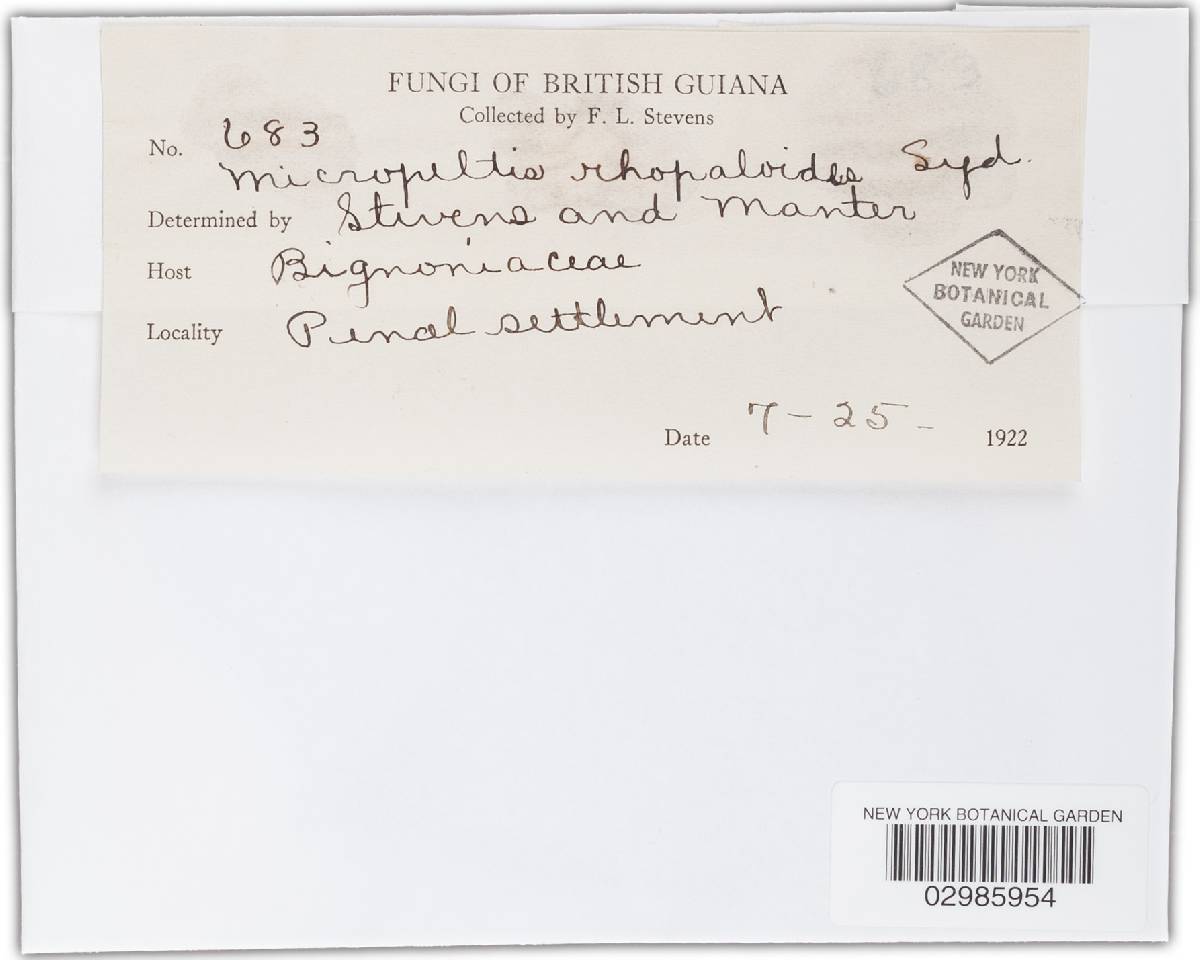 FUNGI OF BRITISH GUIANA
Collected by F. L. Stevens
No. 683
Micropeltis rhopaloides Syd.
Determined by Stevens and Manter
Host Bignoniaceae
Locality Penal settlement
NEW YORK
BOTANICAL
GARDEN
Date 7-25- 1922
NEW YORK BOTANICAL GARDEN
02985954